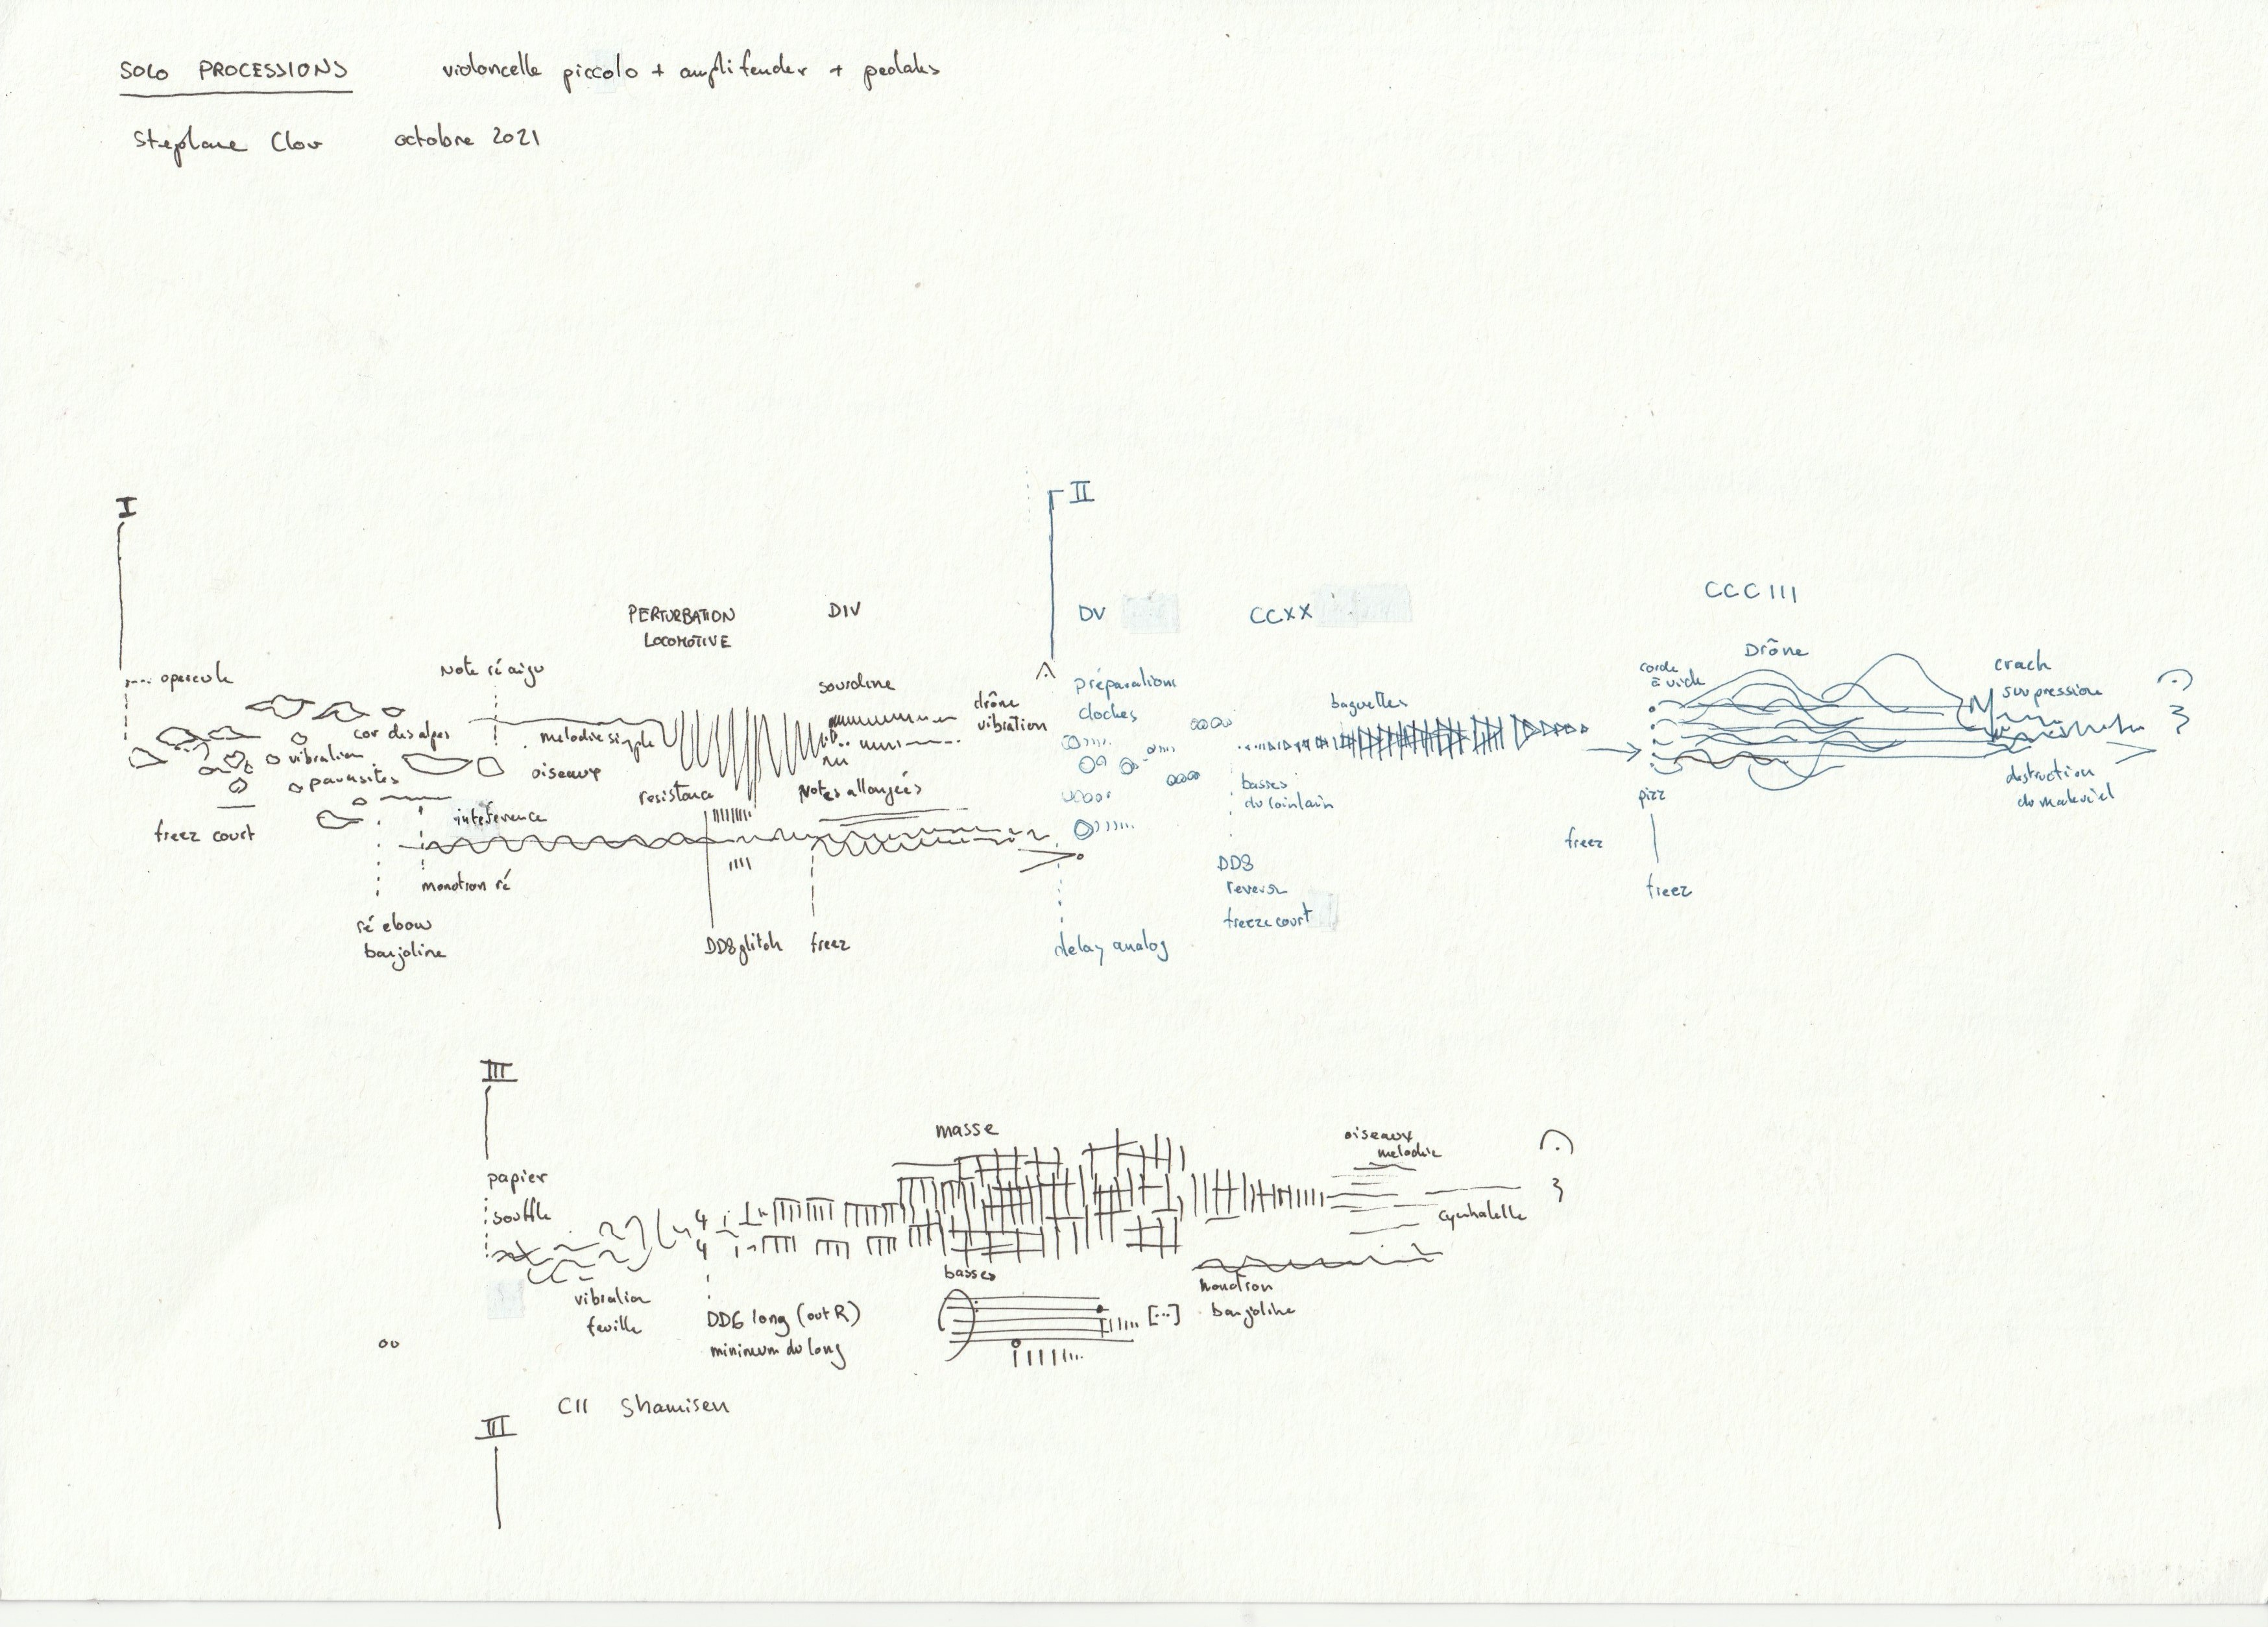 SOLO PROCESSIONS violoncelle piccolo + ampli fender + pedales
Stéphane Clor octobre 2021
I
II
CCCIII
PERTURBATION
LOCOMOTIVE
DIV
DV
CCXX
opercule
Note ré aigu
sourdine
drône
vibration
préparations
cloches
baguettes
corde
à vide
Drône
crach
surpression
cor des alpes
vibration
parasites
melodie simple
oiseaux
resistance
Notes allongées
basses
du lointain
pizz
destruction
du materiel
freez court
interference
monotron ré
ré ebow
banjoline
DD8 glitch
freez
delay analog
DD8
reverse
freeze court
freez
freez
III
masse
oiseaux
melodie
papier
souffle
cymbalette
vibration
feuille
basses
monotron
banjoline
DD6 long (out R)
minimum du long
[...]
CII Shamisen
III